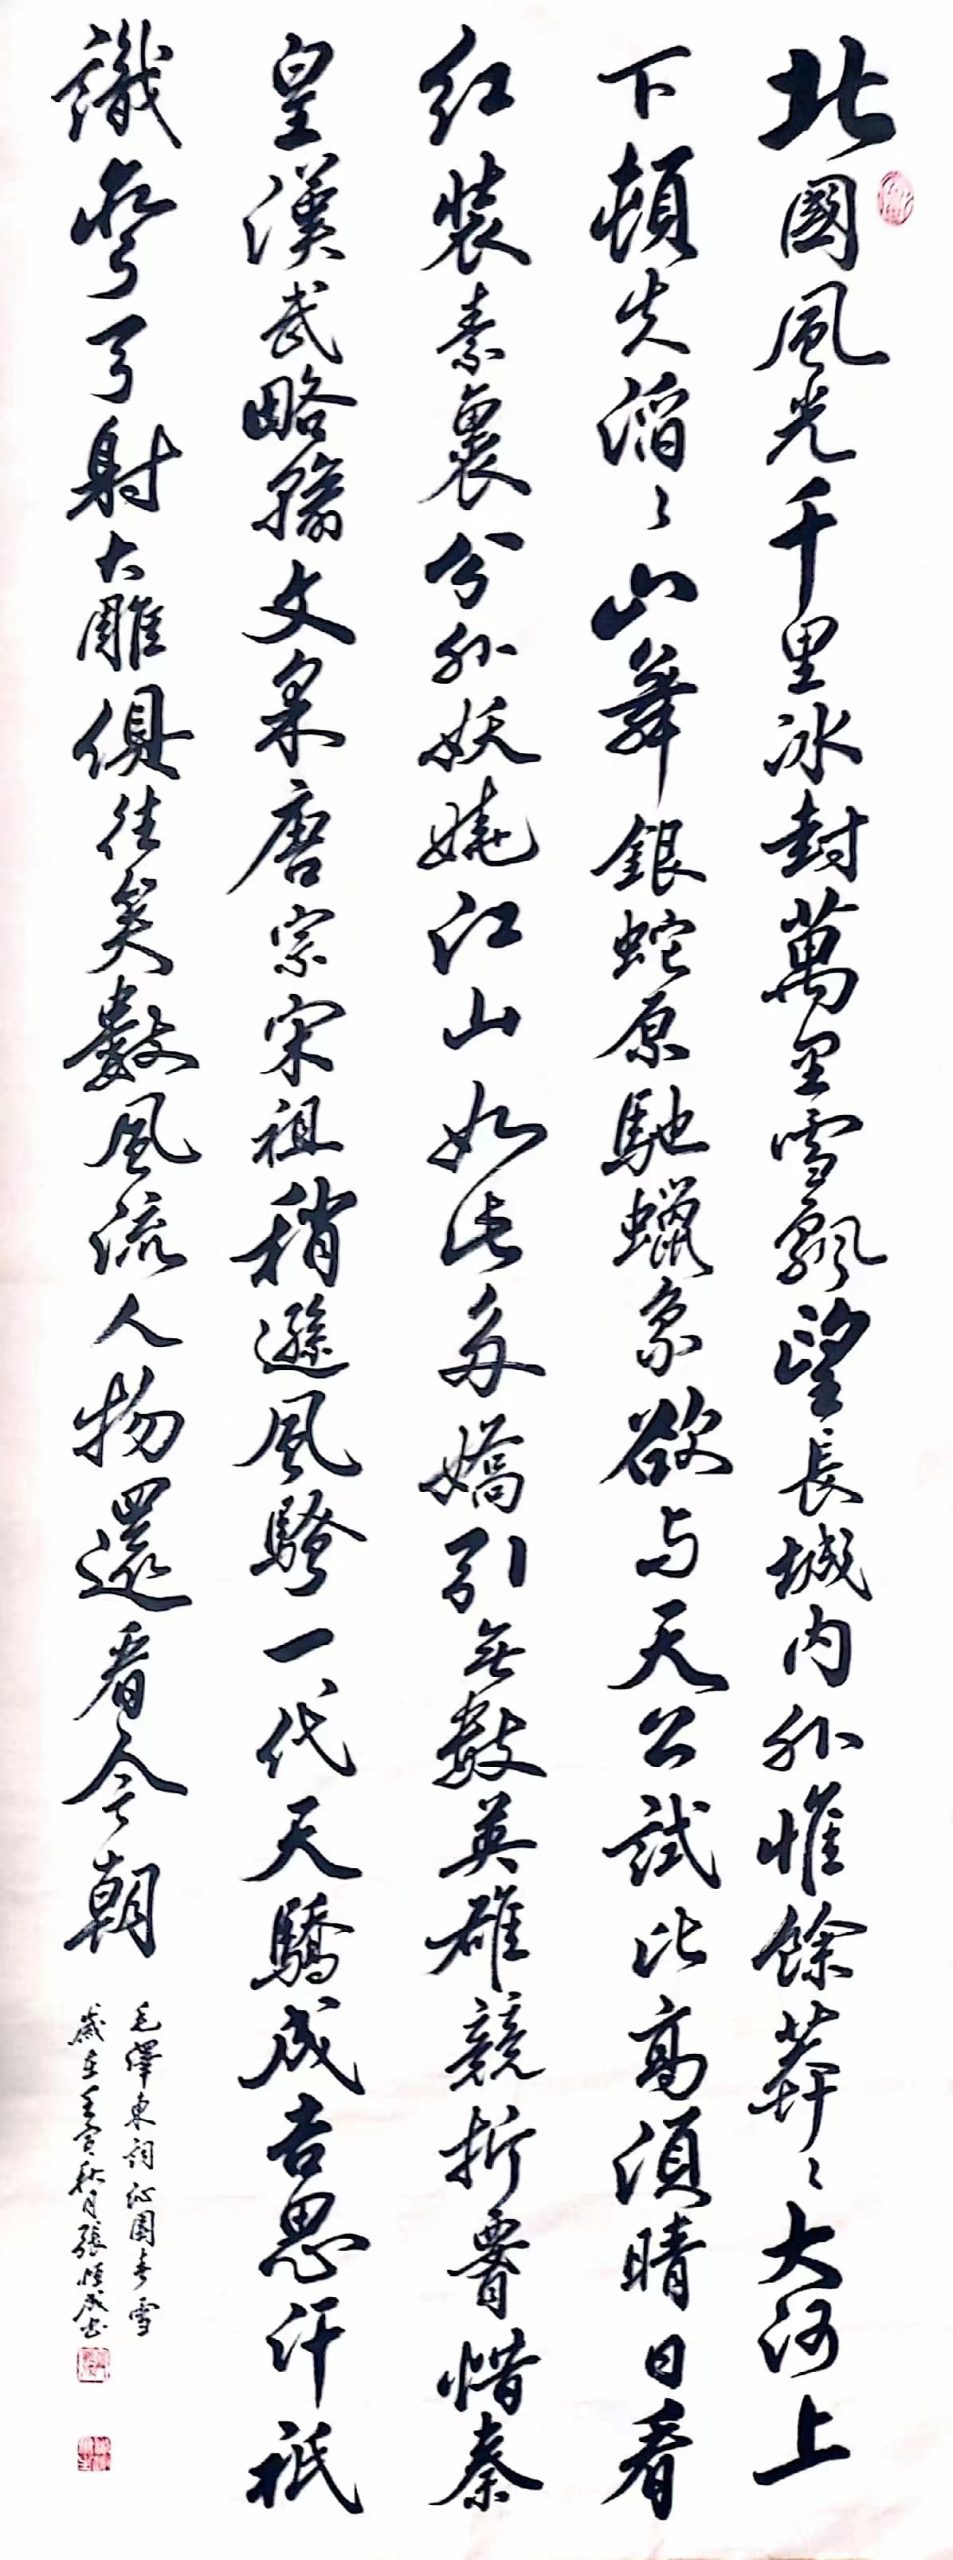 北國風光千里冰封萬里雪飄望長城内外惟餘莽々大河上
下頓失滔々山舞銀蛇原馳蠟象欲与天公試比高須晴日看
红裝素裹分外妖嬈江山如此多嬌引無數英雄競折腰惜秦
皇漢武略輸文采唐宗宋祖稍遜風騷一代天驕成吉思汗祇
識彎弓射大雕俱往矣數風流人物還看今朝
毛澤東詞沁園春雪
歲在壬寅秋月張成书